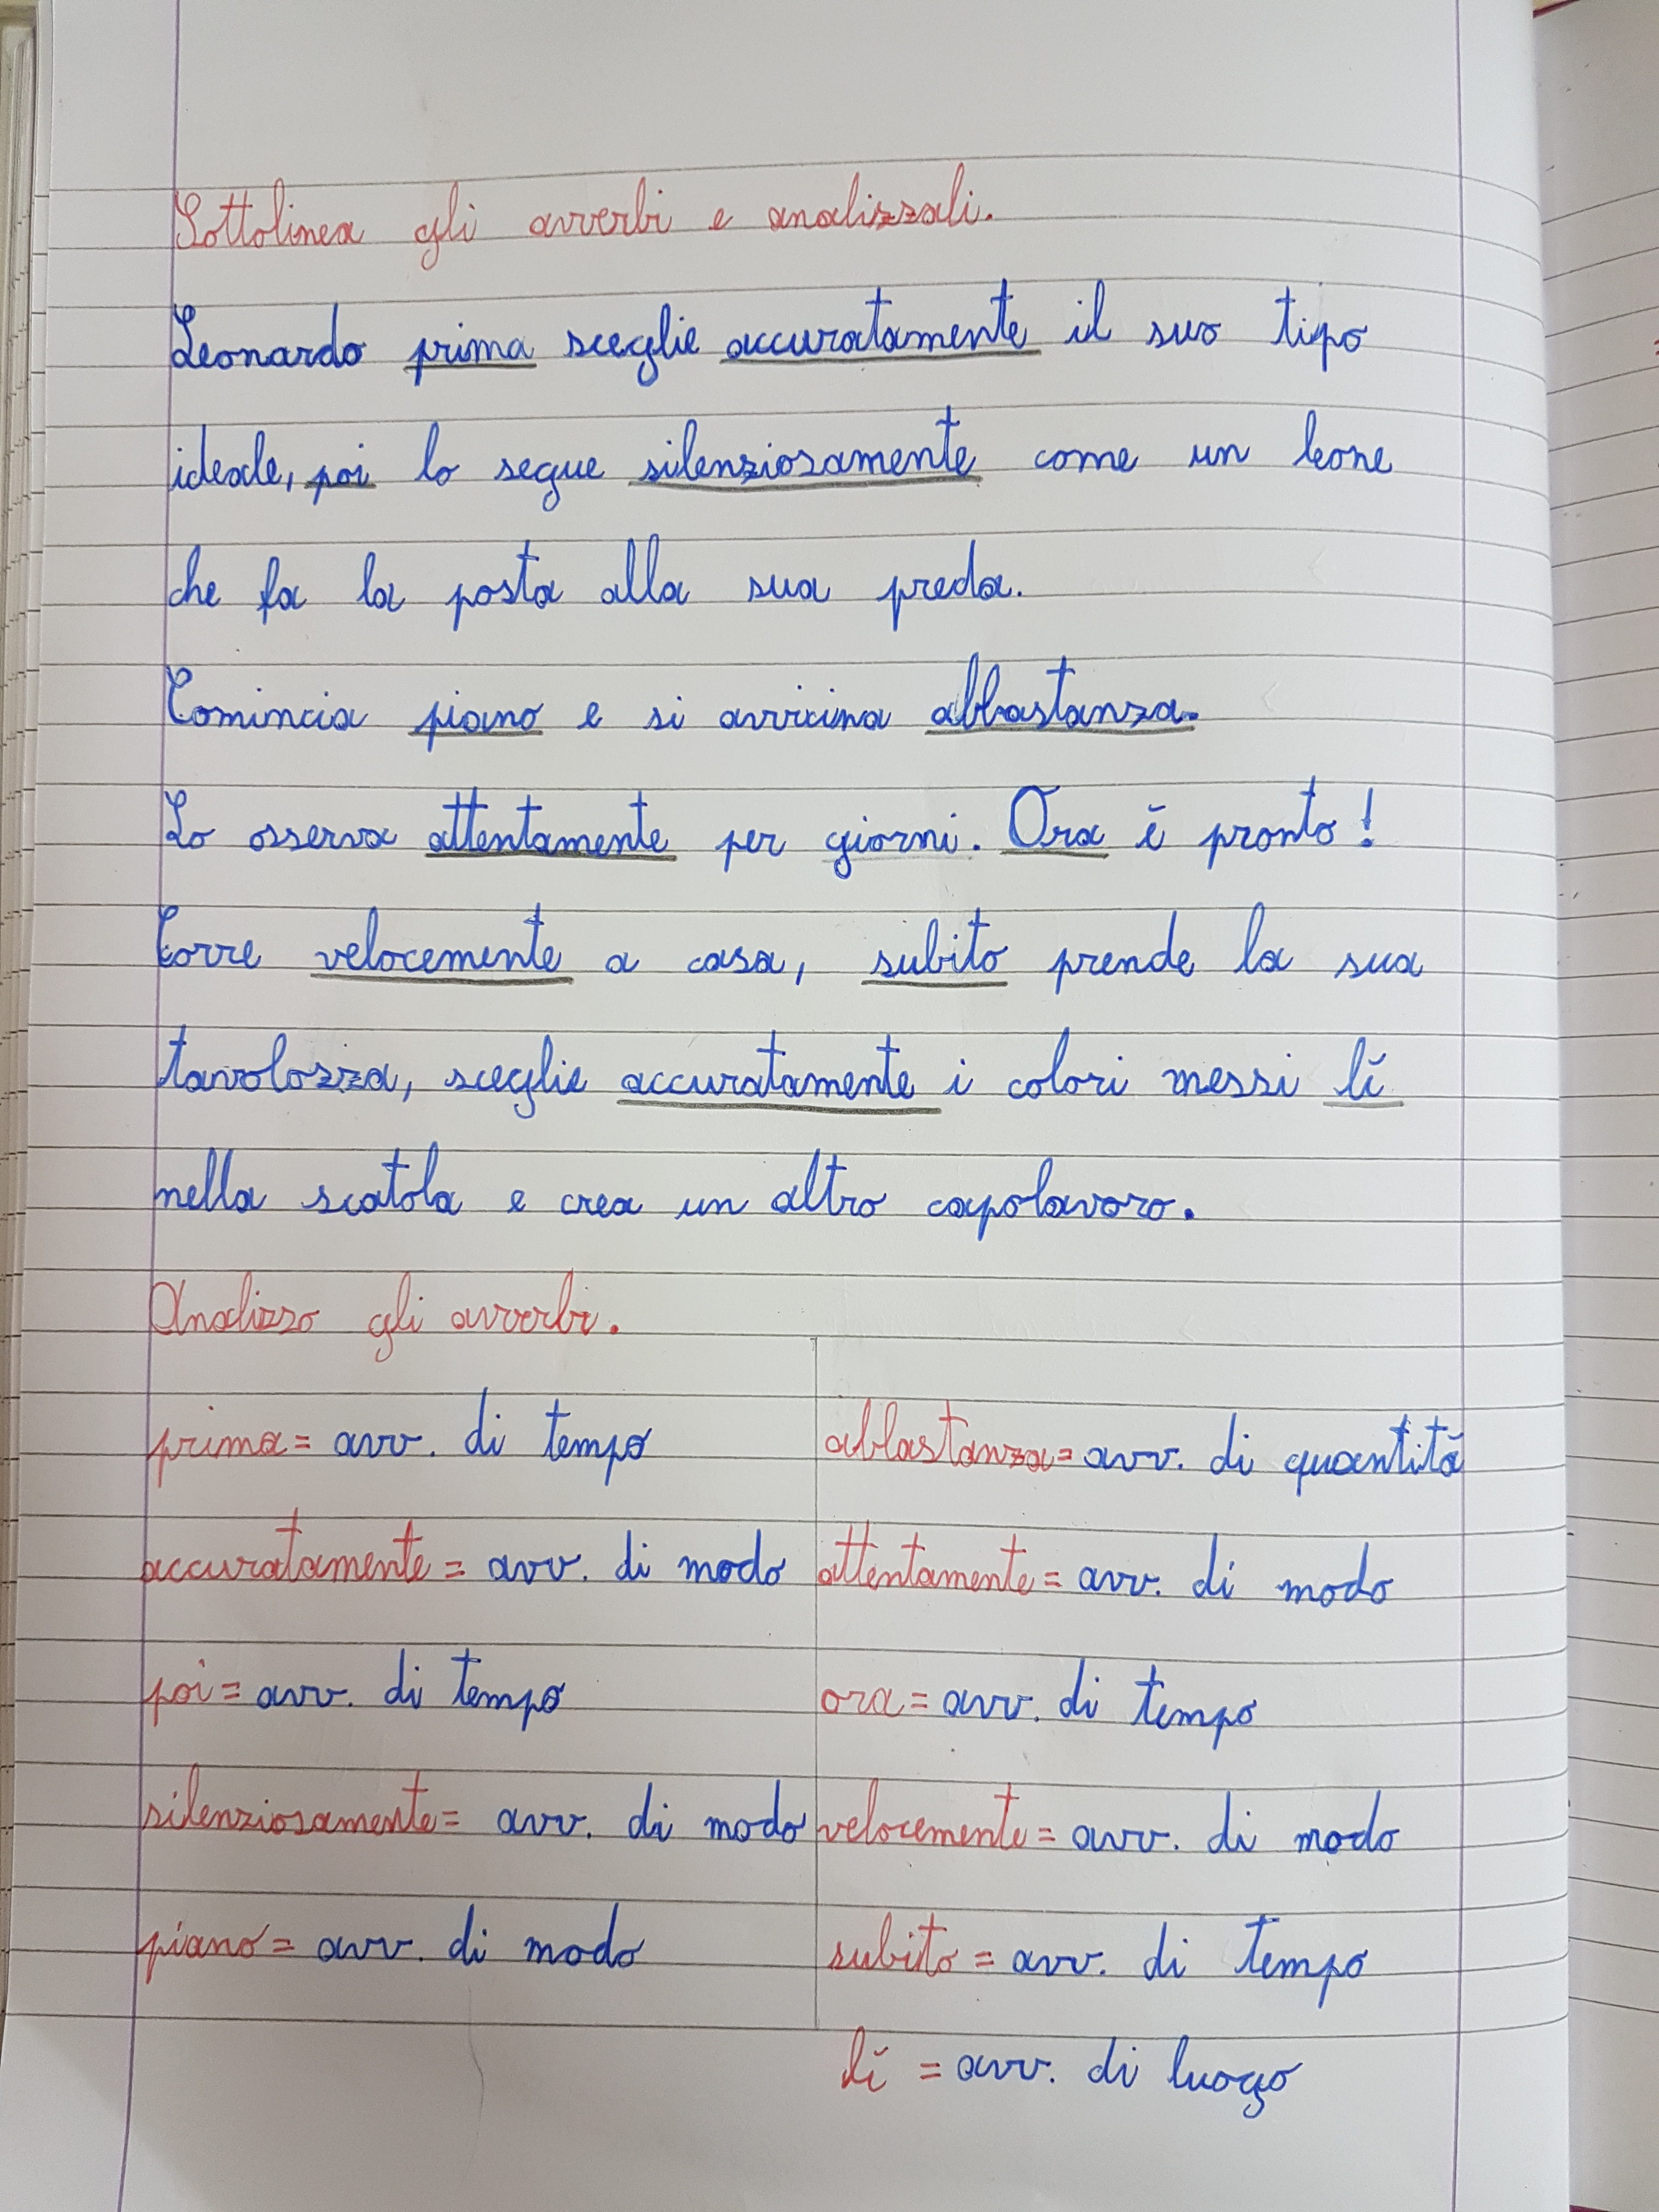 Sottolinea gli avverbi e analizzali.
Leonardo prima sceglie accuratamente il suo tipo
ideale, poi lo segue silenziosamente come un leone
che fa la posta alla sua preda.
Comincia piano e si avvicina abbastanza.
Lo osserva attentamente per giorni. Ora è pronto!
Corre velocemente a casa, subito prende la sua
tavolozza, sceglie accuratamente i colori messi lì
nella scatola e crea un altro capolavoro.
Analizzo gli avverbi.
prima = avv. di tempo
accuratamente = avv. di modo
poi = avv. di tempo
silenziosamente = avv. di modo
piano = avv. di modo
abbastanza = avv. di quantità
attentamente = avv. di modo
ora = avv. di tempo
velocemente = avv. di modo
subito = avv. di tempo
lì = avv. di luogo